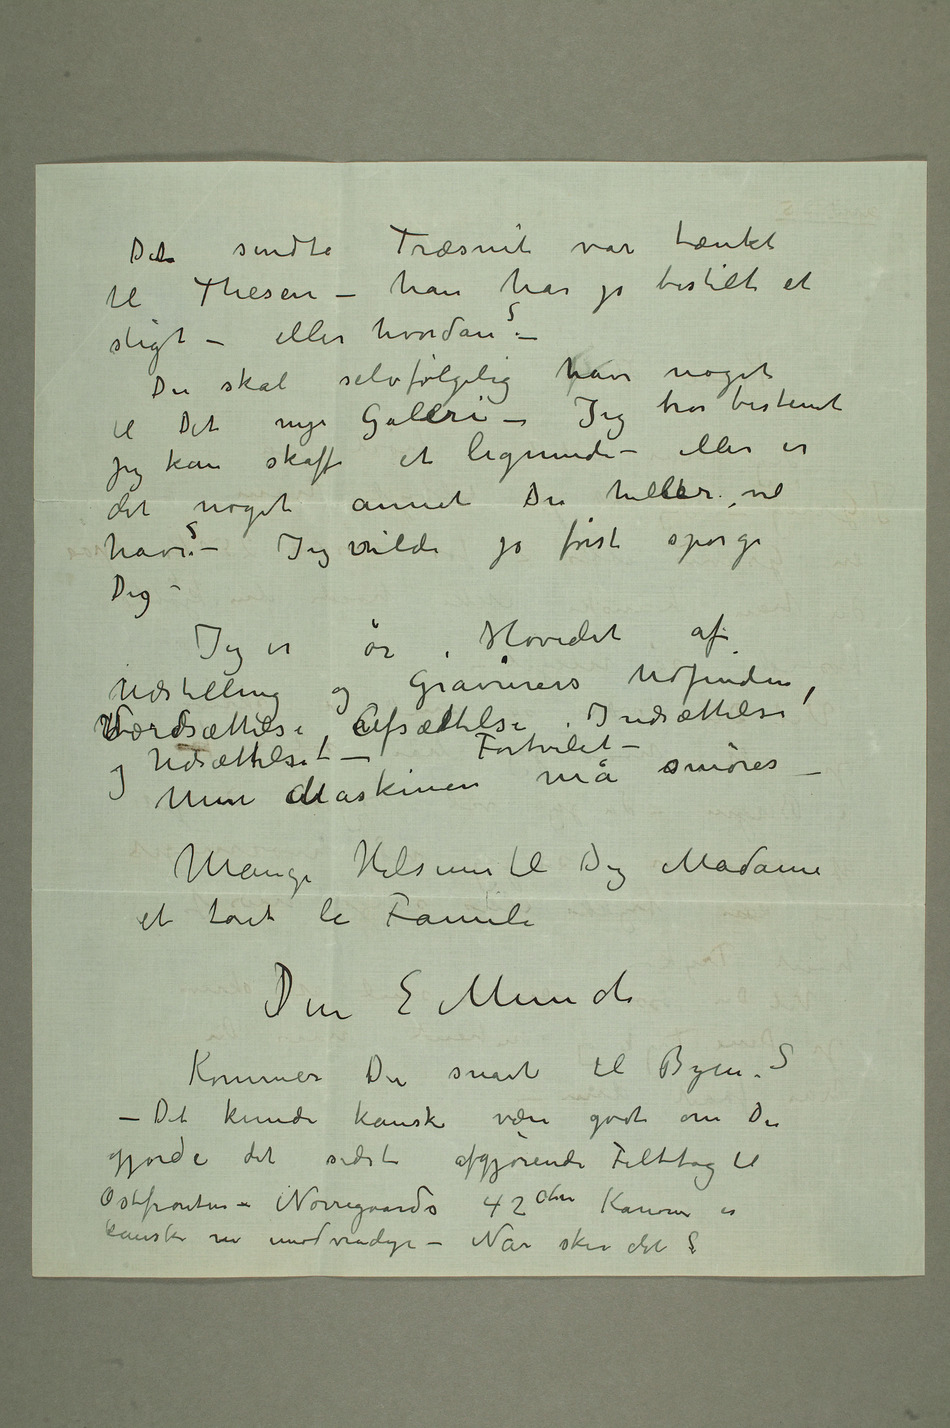 Det sendte Træsnit var tænkt
til Thesen – han har jo bestilt et
sligt – eller hvordan? –
Du skal selvfølgelig have noget
til Det nye Galleri – Jeg tror bestemt
jeg kan skaffe et lignende – eller er
det noget annet Du heller vil
have? – Jeg vilde jo først spørge
Dig –
Jeg er ør i Hovedet af
Udstilling og Gravurers Udfinden,
Værdsættelse, Afsættelse, Indsættelse
og Udsættelse – Fortvilet –
Min Maskineri må smøres –
Mange Hilsener til Dig Madame
et tout le Famile
Din E Munch
Kommer Du snart til Byen. ?
– Det kunde kanske være godt om Du
gjorde det sidste afgjørende Felttog til
Østfronten – Nørregaards 42 ctm Kanon er
kanske nu unødvendige – Når sker det ?